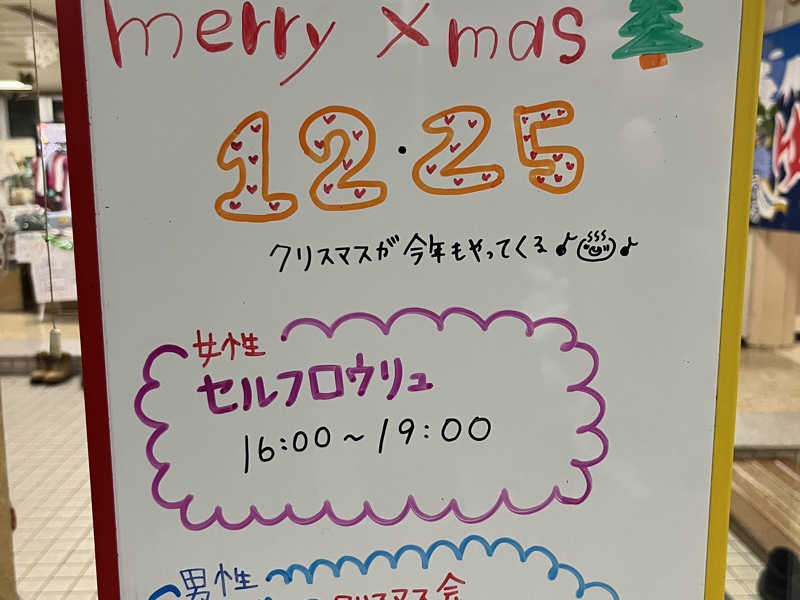 merry Xmas
12・25
クリスマスが今年もやってくる♪♨♪
女性
セルフロウリュ
16:00~19:00
男性
クリスマス会